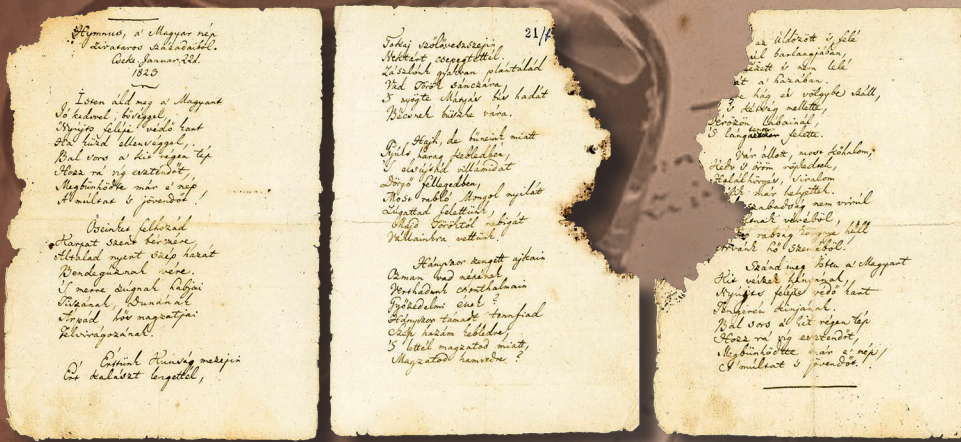 Hymnus, a' Magyar nép
zivataros századaiból.
Cseke. Januar. 22d.
1823
Isten áldd meg a' Magyart
Jó kedvvel, bőséggel,
Nyújts feléje védő kart
Ha küzd ellenséggel,
Bal sors a' kit régen tép
Hozz rá víg esztendőt,
Megbünhödte már e' nép
A' multat 's jövendőt!
Őseinket felhozád
Kárpát szent bérczére,
Általad nyert szép hazát
Bendegúznak vére.
'S merre zúgnak habjai
Tiszának, Dunának
Árpád hős magzatjai
Felvirágozának.
Értünk Kunság mezején
Ért kalászt lengettél,
21/
Tokaj szőlővesszejin
Nektárt csepegtettél.
Zászlónk gyakran plántálád
Vad Török sánczára,
'S nyögte Mátyás bús hadát
Bécsnek büszke vára.
Hajh, de bűneink miatt
Gyúlt harag kebledben,
'S elsújtád villámidat
Dörgő fellegedben,
Most rabló Mongol nyilát
Zúgattad felettünk,
Majd Töröktől rabigát
Vállainkra vettünk.
Hányszor zengett ajkain
Ozman vad népének
Vert hadunk csonthalmain
Győzedelmi ének?
Hányszor támadt tennfiad
Szép hazám kebledre,
'S lettél magzatod miatt
Magzatod hamvvedre?
az üldözött 's felé
barlangjában,
nézett 's nem lelé
a' hazában.
hág és völgybe száll,
'S kétség mellette,
Vérözön lábainál,
'S lángtenger felette.
Vár állott, most kőhalom,
Kedv 's öröm röpkedtek,
Halálhörgés, siralom
már helyettek.
szabadság nem virúl
véréből,
rabság könnye húll
hő szeméből.
Szánd meg Isten a' Magyart
Kit vészek hányának,
Nyújts feléje védő kart
Tengerén kínjának.
Bal sors a' kit régen tép
Hozz rá víg esztendőt,
Megbünhödte már e' nép,
A' multat 's jövendőt.